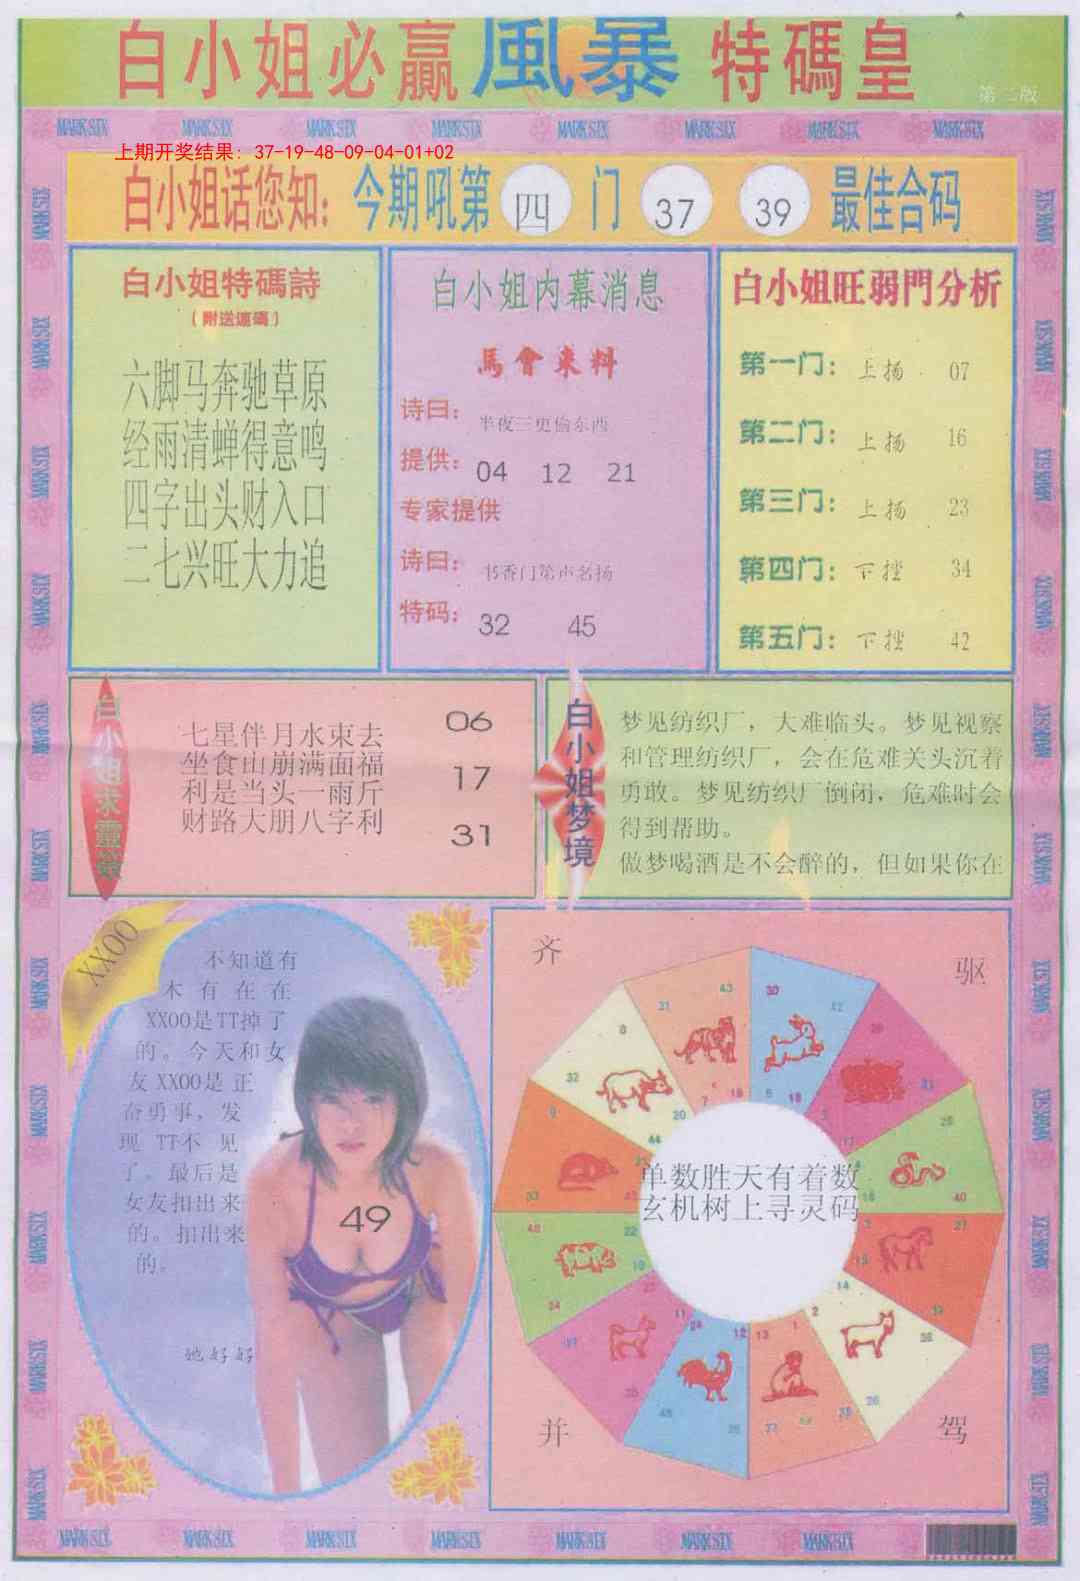 白小姐必赢風暴特碼皇
第二版
MARK SIX MARK SIX MARK SIX MARK SIX MARK SIX MARK SIX MARK SIX MARK SIX
上期开奖结果: 37-19-48-09-04-01+02
白小姐话您知: 今期吼第 四 门 37 39 最佳合码
白小姐特碼詩
(附送連碼)
六脚马奔驰草原
经雨清蝉得意鸣
四字出头财入口
二七兴旺大力追
白小姐内幕消息
馬會来料
诗曰: 半夜三更偷东西
提供: 04 12 21
专家提供
诗曰: 书香门第声名扬
特码: 32 45
白小姐旺弱門分析
第一门: 上扬 07
第二门: 上扬 16
第三门: 上扬 23
第四门: 下挫 34
第五门: 下挫 42
白小姐求靈簽
七星伴月水東去
坐食山崩满面福
利是当头一雨斤
财路大朋八字利
06
17
31
白小姐梦境
梦见纺织厂，大难临头。梦见视察
和管理纺织厂，会在危难关头沉着
勇敢。梦见纺织厂倒闭，危难时会
得到帮助。
做梦喝酒是不会醉的，但如果你在
XXOO
不知道有
木有在在
XXOO是TT掉了
的。今天和女
友XXOO是正
奋勇事，发
现 TT不见
了。最后是
女友扣出来
的。扣出来
的。
49
她好好
齐
驱
单数胜天有着数
玄机树上寻灵码
并
驾
MARK SIX MARK SIX MARK SIX MARK SIX MARK SIX MARK SIX MARK SIX